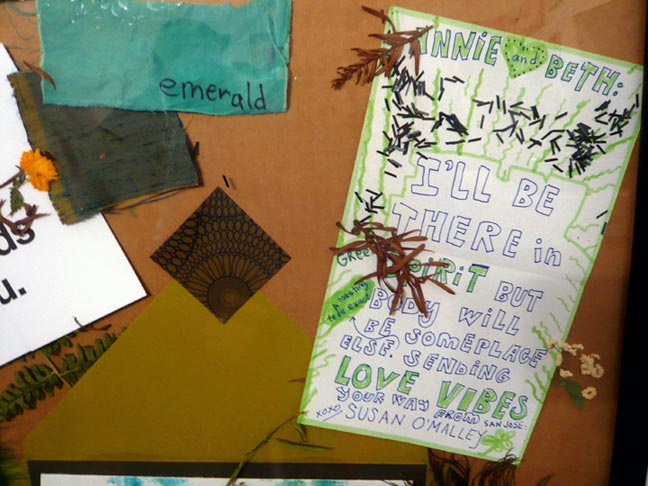 emerald
ds
u.
ANNIE and BETH:
I'LL BE
THERE in
GREEN SPIRIT BUT
BODY WILL
BE SOMEPLACE
ELSE. SENDING
LOVE VIBES
YOUR WAY FROM SAN JOSE.
XOXO, SUSAN O'MALLEY
to be exact